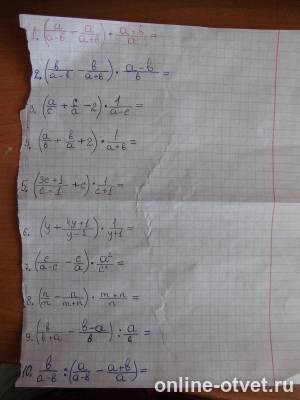 1. (a/(a-b) - a/(a+b)) · (a+b)/a =
2. (b/(a-b) - b/(a+b)) · (a-b)/b =
3. (a/c + c/a - 2) · 1/(a-c) =
4. (a/b + b/a + 2) · 1/(a+b) =
5. ((3c+1)/(c-1) + c) · 1/(c+1) =
6. (y + (4y+1)/(y-2)) · 1/(y+1) =
7. (c/(a-c) - c/a) · a²/c² =
8. (n/m - n/(m+n)) · (m+n)/n =
9. (b/(b+a) - (b-a)/b) : a/b =
10. b/(a-b) : (a/(a-b) - (a+b)/a) =
online-otvet.ru